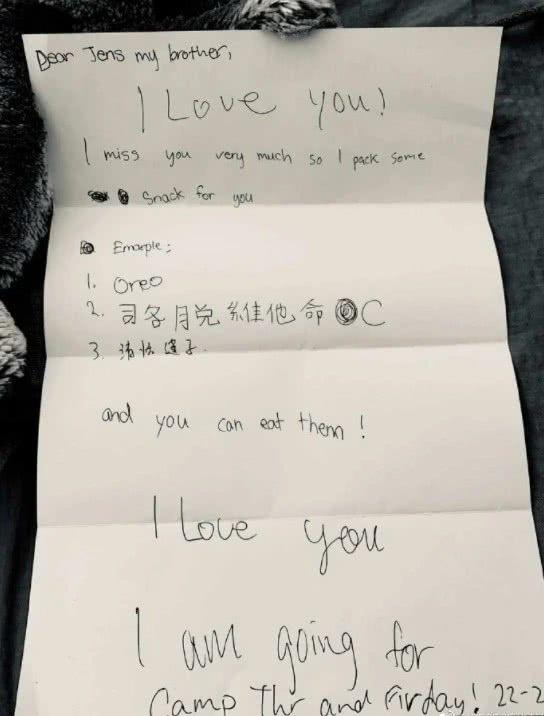 Dear Jens my brother,
I Love you!
I miss you very much so I pack some
Snack for you
Emaeple:
1. Oreo
2. 司各脫維他命 C
3.
and you can eat them!
I Love you
I am going for
Camp Thr and Firday! 22-2